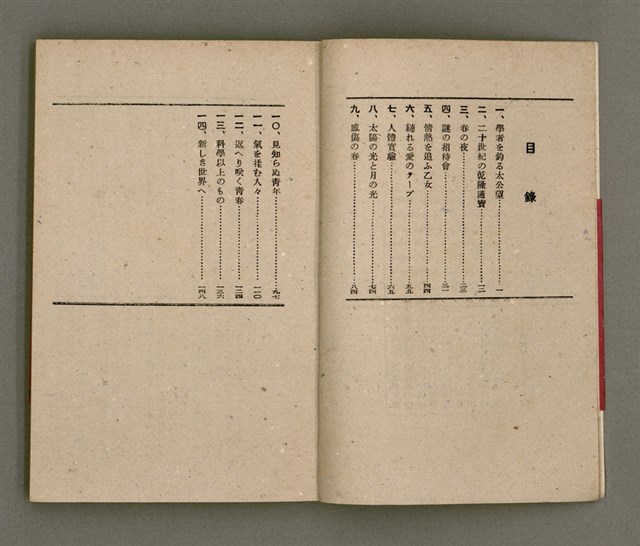 目錄
一、學者を釣る太公望…………一
二、二十世紀の乾隆通寶…………一二
三、春の夜…………二三
四、謎の招待會…………三一
五、情熱を追ふ乙女…………四四
六、縺れる愛のテープ…………五五
七、人體實驗…………六五
八、太陽の光と月の光…………七四
九、感傷の春…………八四
一〇、見知らぬ靑年…………九七
一一、氣を揉む人々…………一一〇
一二、返へり咲く靑春…………一二四
一三、科學以上のもの…………一三六
一四、新しき世界へ…………一四八